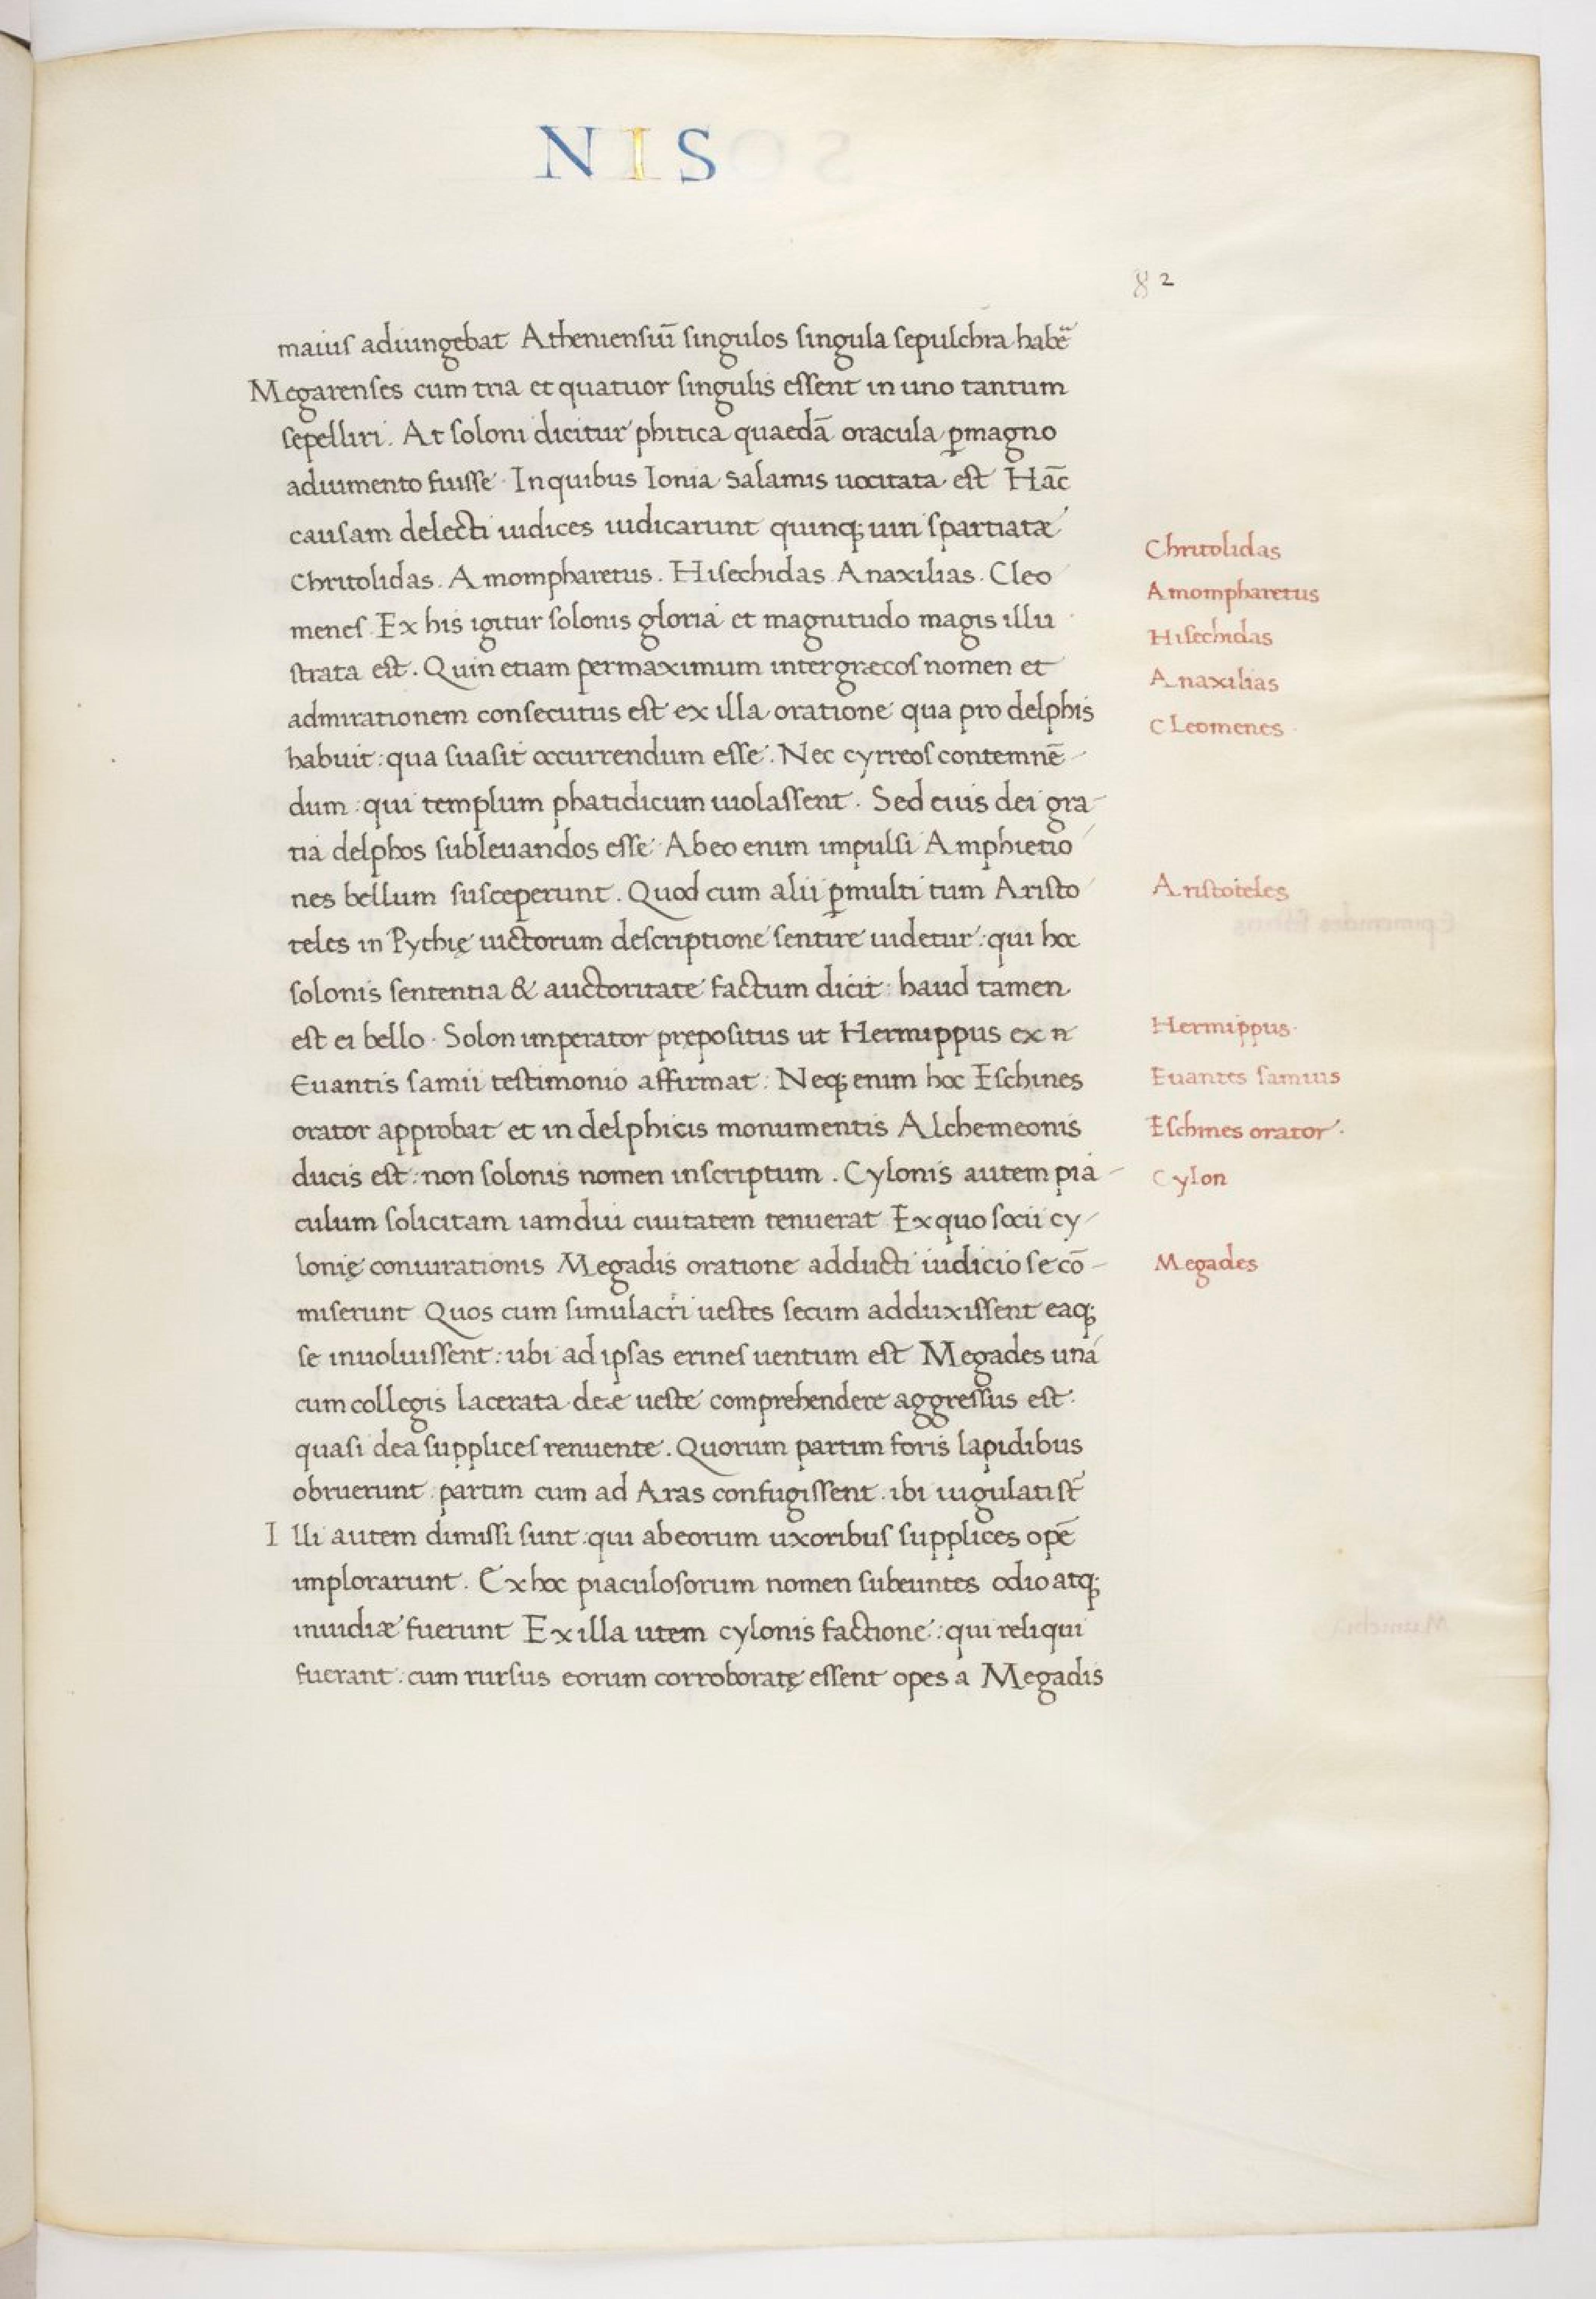 NIS
82
maius adiungebat Atheniensiū singulos singula sepulchra habē
Megarenses cum tria et quatuor singulis essent in uno tantum
sepelliri. At soloni dicitur phitica quaedā oracula ꝑmagno
adiumento fuisse. In quibus Ionia Salamis uocitata est Hāc
causam delecti iudices iudicarunt quinq; uiri spartiatæ
Chritolidas. Amompharetus. Hisechidas. Anaxilias. Cleo
menes. Ex his igitur solonis gloria et magnitudo magis illu
strata est. Quin etiam permaximum inter græcos nomen et
admirationem consecutus est ex illa oratione qua pro delphis
habuit: qua suasit occurrendum esse. Nec cyrreos contemnē-
dum: qui templum phatidicum uiolassent. Sed eius dei gra-
tia delphos subleuandos esse Ab eo enim impulsi Amphictio
nes bellum susceperunt. Quod cum alii ꝑmulti tum Aristo
teles in Pythię uictorum descriptione sentire uidetur: qui hoc
solonis sententia & auctoritate factum dicit: haud tamen
est ei bello. Solon imperator prępositus ut Hermippus ex
Euantis samii testimonio affirmat: Neq; enim hoc Eschines
orator approbat et in delphicis monumentis Alchemeonis
ducis est: non solonis nomen inscriptum. Cylonis autem pia-
culum solicitam iamdiu ciuitatem tenuerat Ex quo socii cy
lonię coniurationis Megadis oratione adducti iudicio se cō-
miserunt Quos cum simulacri uestes secum adduxissent eaq;
se inuoluissent: ubi ad ipsas erines uentum est Megades una
cum collegis lacerata deæ ueste comprehendere aggressus est:
quasi dea supplices renuente. Quorum partim foris lapidibus
obruerunt partim cum ad Aras confugissent. ibi iugulati st̄
Illi autem dimissi sunt: qui ab eorum uxoribus supplices opē
implorarunt. Ex hoc piaculosorum nomen subeuntes odio atq;
inuidiæ fuerunt Ex illa utem cylonis factione: qui reliqui
fuerant: cum rursus eorum corroboratę essent opes a Megadis
Chritolidas
Amompharetus
Hisechidas
Anaxilias
Cleomenes
Aristoteles
Hermippus.
Euantes samius
Eschines orator.
Cylon
Megades